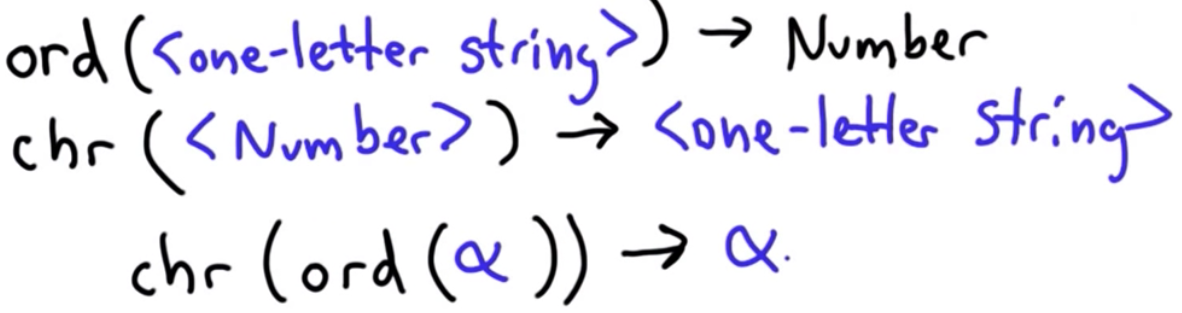 ord(<one-letter string>) → Number
chr(<Number>) → <one-letter string>
chr(ord(α)) → α.